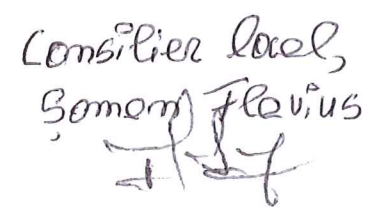 Consilier local,
Șoman Flavius